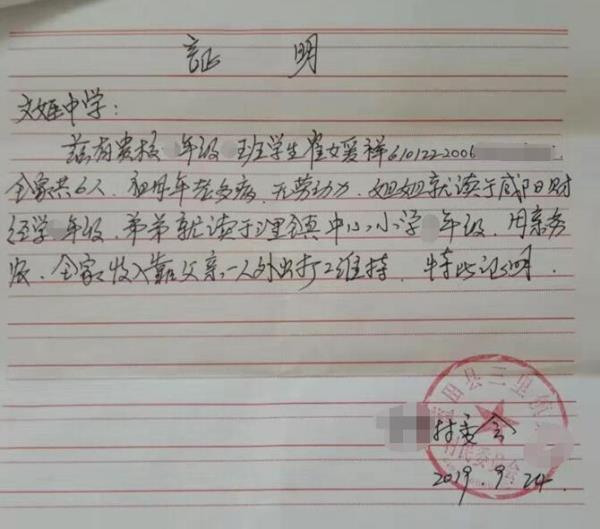 证 明
文姬中学：
兹有贵校 年级 班学生崔媛祥610122-2006
全家共6人，祖母年老多病，无劳动力，姐姐就读于咸阳财
经学 年级，弟弟就读于里镇中心小学 年级，因亲务
农，全家收入靠父亲一人外出打工维持，特此证明。
村委会
2019.9.24
田县三里镇
村民委员会